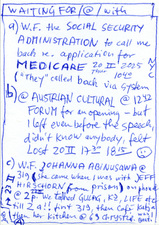 WAITING FOR/@/with
a) W.F. the SOCIAL SECURITY
ADMINISTRATION to call me
back w. application for
MEDICARE 20 II 2025
("They" called back via system 1045
b) @ AUSTRIAN CULTURAL @ 1242
FORUM for an opening - but
left even before the speech,
didn't know anybody, felt
lost 20 II 1935 1815
c) W.F. JOHANNA
@ 319 (she came when I was with JEFF
HIRSCHORN (from prison) on phone
@ 2p. We talked GULAG, K2, LIFE etc
till 2
her kitchen @ 63 chrystie.